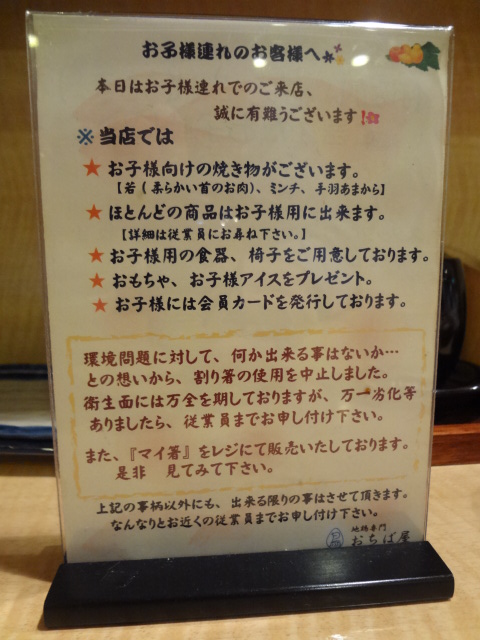 お子様連れのお客様へ
本日はお子様連れでのご来店、
誠に有難うございます!
※当店では
★お子様向けの焼き物がございます。
【若(柔らかい首のお肉)、ミンチ、手羽あまから】
★ほとんどの商品はお子様用に出来ます。
【詳細は従業員にお尋ね下さい。】
★お子様用の食器、椅子をご用意しております。
★おもちゃ、お子様アイスをプレゼント。
★お子様には会員カードを発行しております。
環境問題に対して、何か出来る事はないか…
との想いから、割り箸の使用を中止しました。
衛生面には万全を期しておりますが、万一劣化等
ありましたら、従業員までお申し付け下さい。
また、『マイ箸』をレジにて販売いたしております。
是非 見てみて下さい。
上記の事柄以外にも、出来る限りの事はさせて頂きます。
なんなりとお近くの従業員までお申し付け下さい。
地鶏専門
おちば屋